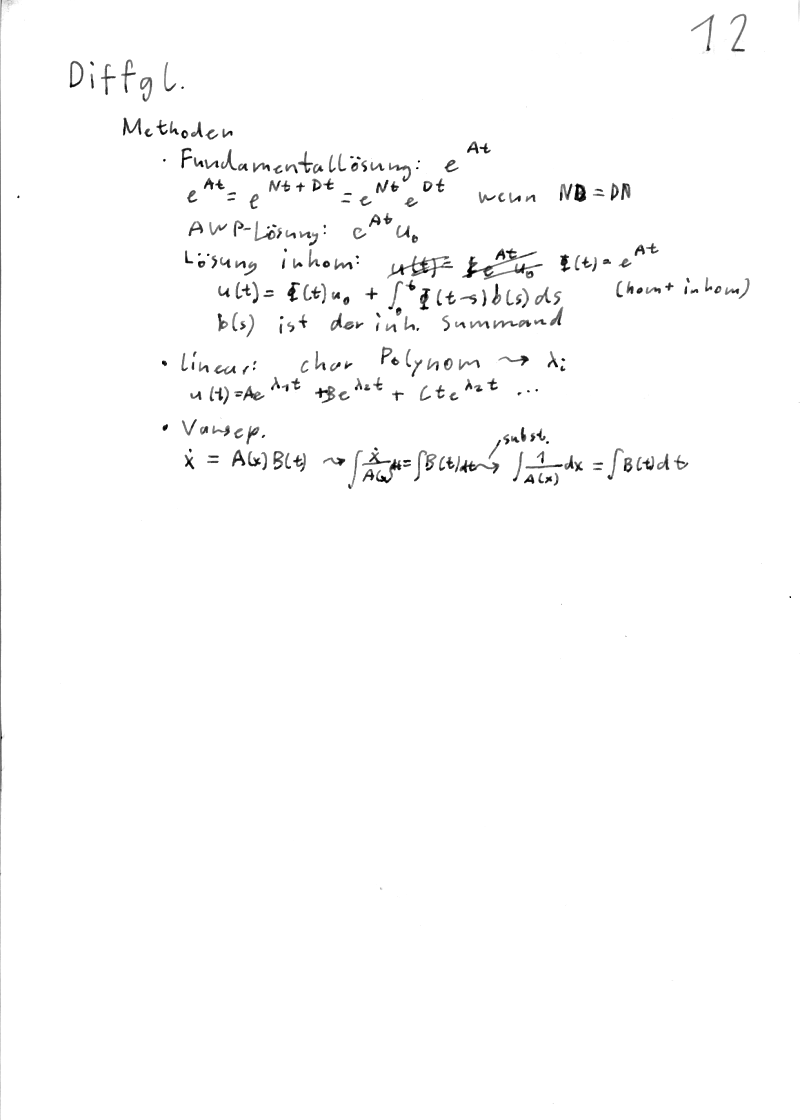 12
Diffgl.
Methoden
· Fundamentallösung: e^{At}
e^{At} = e^{Nt + Dt} = e^{Nt} e^{Dt} wenn ND = DN
AWP-Lösung: e^{At} u₀
Lösung inhom: Φ(t) = e^{At}
u(t) = Φ(t) u₀ + ∫₀ᵗ Φ(t-s) b(s) ds (hom + inhom)
b(s) ist der inh. Summand
• linear: char Polynom ⤳ λᵢ
u(t) = Ae^{λ₁t} + Be^{λ₂t} + Cte^{λ₂t} ...
• Varsep. subst.
ẋ = A(x) B(t) ⤳ ∫ ẋ/A(x) dt = ∫ B(t) dt ⤳ ∫ 1/A(x) dx = ∫ B(t) dt